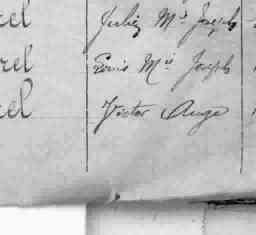 rel Julie M^ie Joseph
rel Louis M^ie Joseph
rel Victor Ange